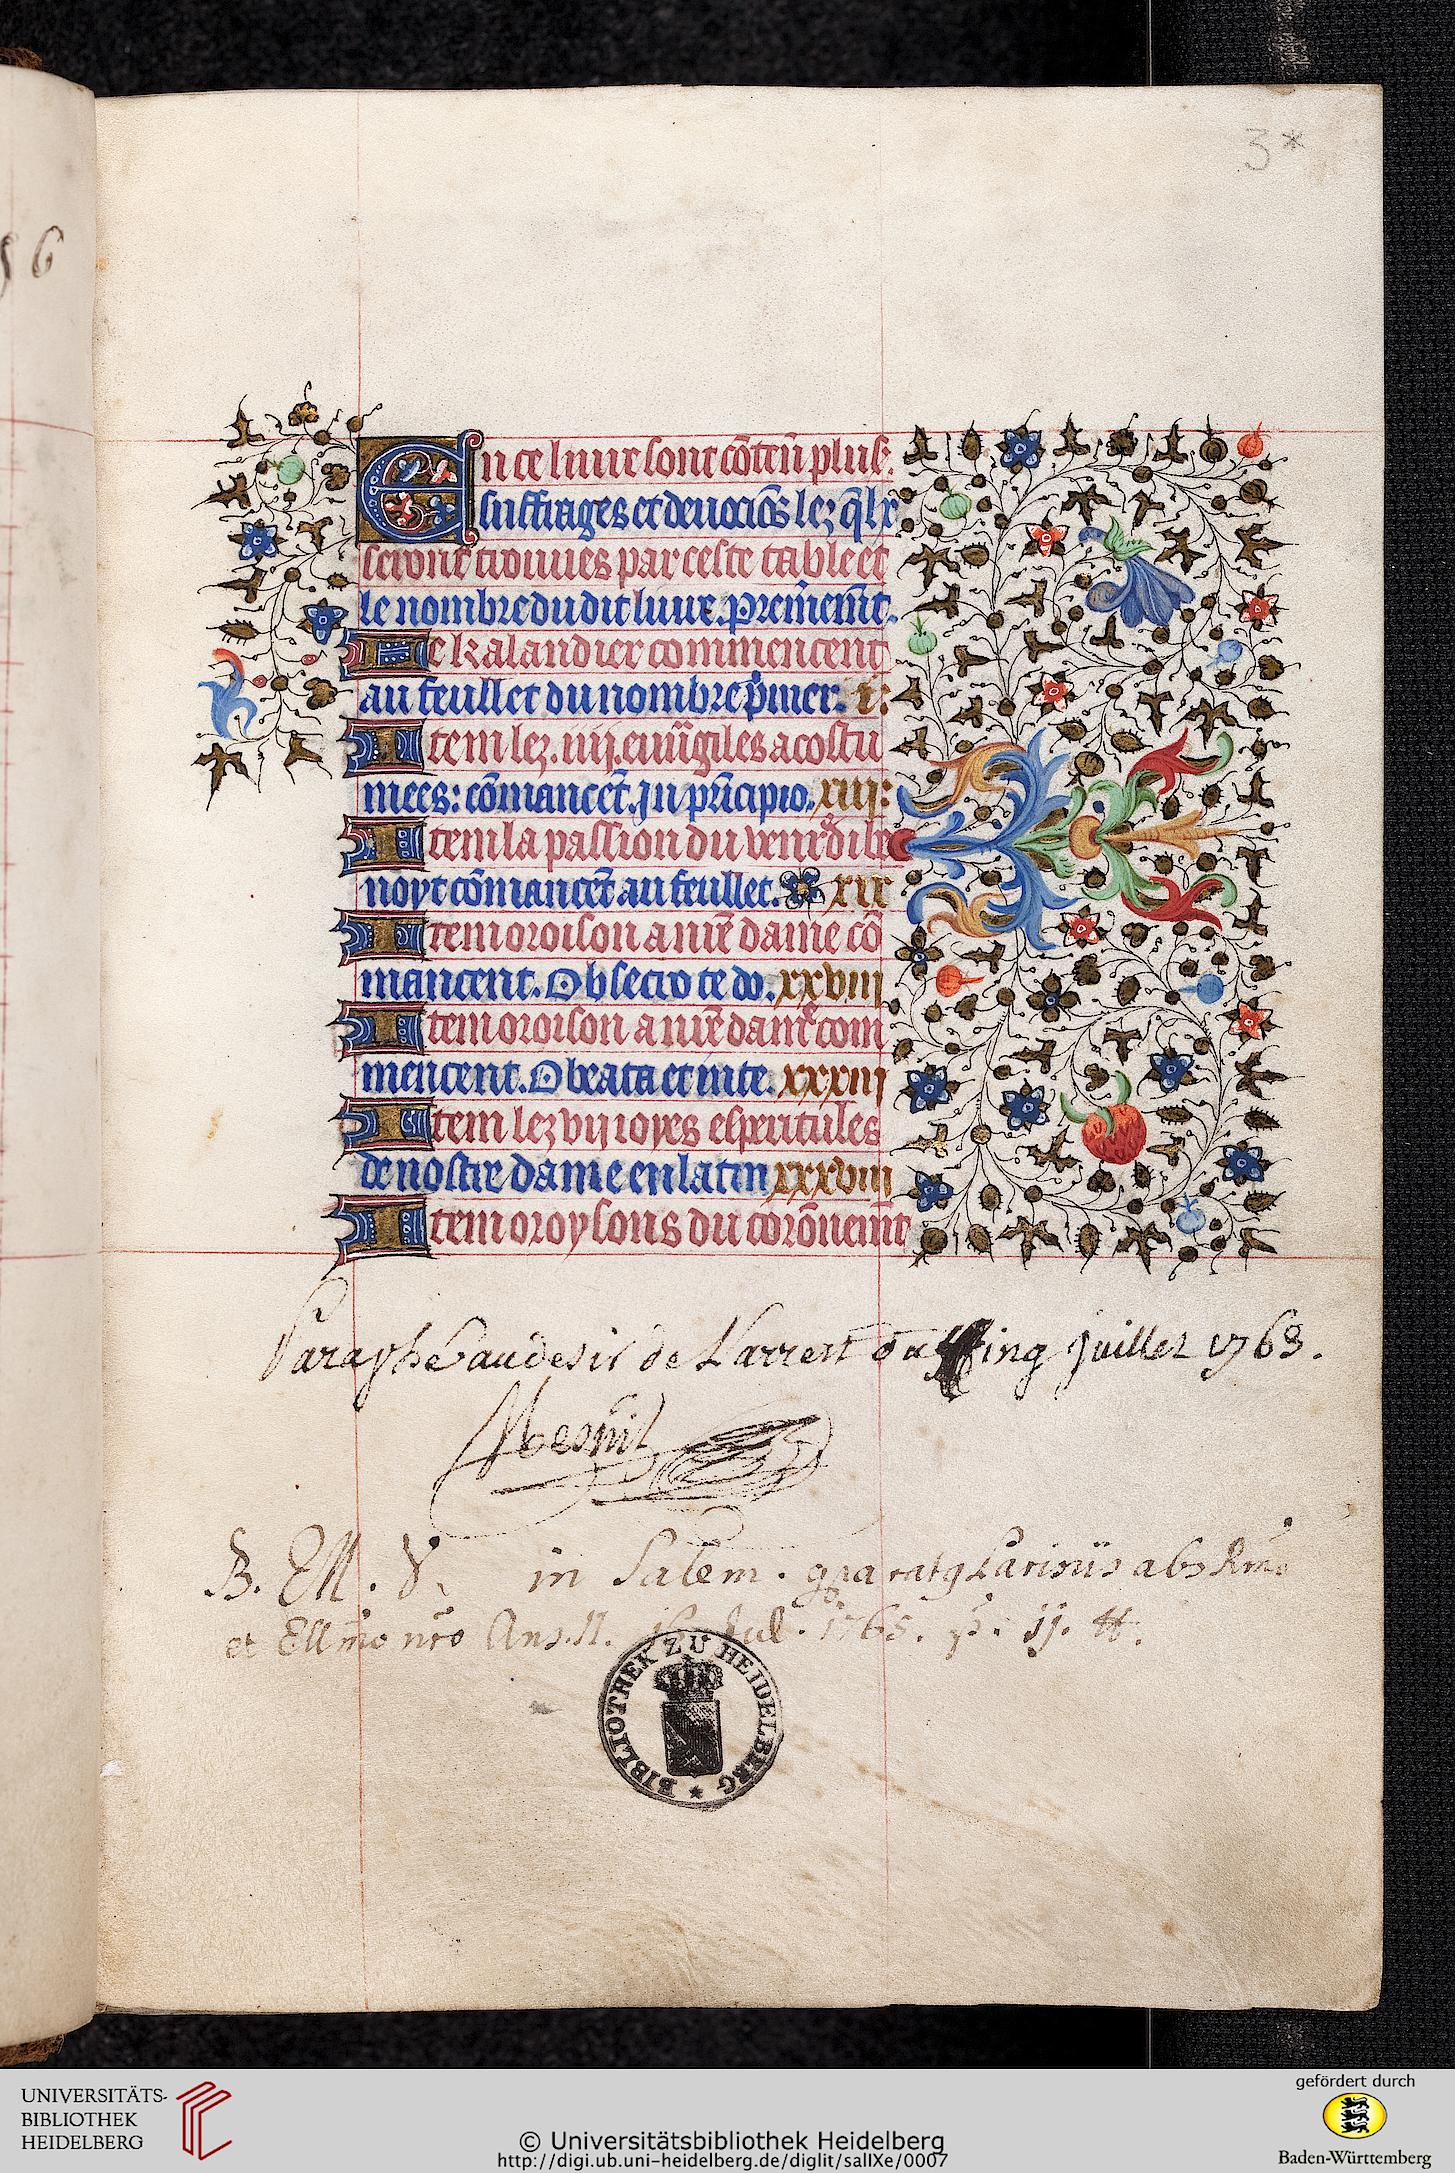 3*
56
En ce livre sont cōtenū plus͛.
suffrages et devociōs lez q̄lx
seront trouves par ceste table et
le nombre du dit livre. Prem̄iem̄t.
Le kalandier commencent
au feullet du nombre p̄mier. i:
Item lez .iiij. euūgiles acostu
mees: cōmancēt. In prīcipio. xiiij:
Item la passion du venr̄di be
noyt cōmancēt au feullet. xix
Item oroison a nr̄e dame cō
mancent. Obsecro te do. xxviij
Item oroison a nr̄e dam̄e com
mencent. O beata et inte. xxxiij
Item lez vij ioyes esperitules
de nostre dame en latin xxxviij
Item oroysons du corōnem̄t
Paraphé au desir de l'arrest du cinq juillet 1763.
Mesnil
B. M. V. in Salem.
et Ann. II. Jul. 1765.
BIBLIOTHEK ZU HEIDELBERG
UNIVERSITÄTS-
BIBLIOTHEK
HEIDELBERG
© Universitätsbibliothek Heidelberg
http://digi.ub.uni-heidelberg.de/diglit/salIXe/0007
gefördert durch
Baden-Württemberg